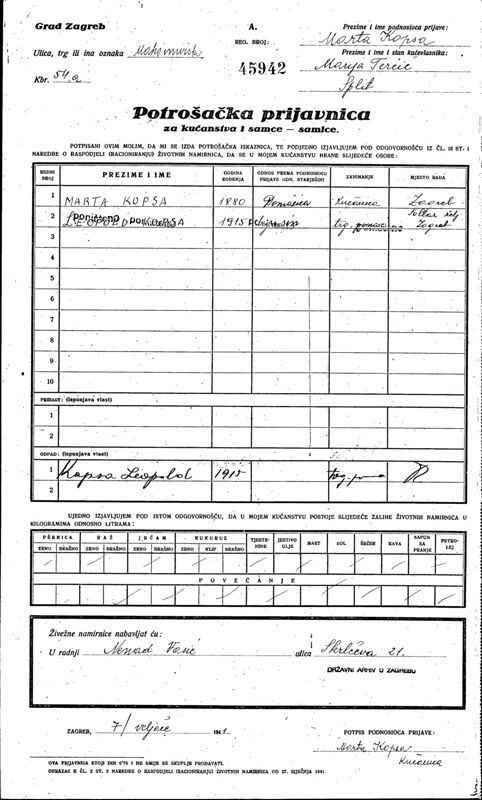 Grad Zagreb
A.
Prezime i ime podnosioca prijave:
Marta Kopsa
Ulica, trg ili ina oznaka
REG. BROJ:
Prezime i ime i stan kućevlasnika:
Kbr. 54 a
45942
Marija Terčić
Split
Potrošačka prijavnica
za kućanstva i samce — samice.
POTPISANI OVIM MOLIM, DA MI SE IZDA POTROŠAČKA ISKAZNICA, TE PODJEDNO IZJAVLJUJEM POD ODGOVORNOŠĆU IZ ČL. 18 ST. 1
NAREDBE O RASPODJELI (RACIONIRANJU) ŽIVOTNIH NAMIRNICA, DA SE U MOJEM KUĆANSTVU HRANE SLIJEDEĆE OSOBE:
REDNI BROJ PREZIME I IME GODINA ROĐENJA ODNOS PREMA PODNOSIOCU PRIJAVE ODN. STARJEŠINI ZANIMANJE MJESTO RADA
1 MARTA KOPSA 1880 Kućanica Zagreb
2 LEOPOLD KOPSA 1915 poništeno trg. Zagreb
3
4
5
6
7
8
9
10
PRIRAST: (ispunjava vlast)
1
2
OTPAD: (ispunjava vlast)
1 Kopsa Leopold 1915
2
UJEDNO IZJAVLJUJEM POD ISTOM ODGOVORNOŠĆU, DA U MOJEM KUĆANSTVU POSTOJE SLIJEDEĆE ZALIHE ŽIVOTNIH NAMIRNICA U
KILOGRAMIMA ODNOSNO LITRAMA:
PŠENICA RAŽ JEČAM KUKURUZ TJESTENINE JESTIVO ULJE MAST SOL ŠEĆER KAVA SAPUN ZA PRANJE PETROLEJ
ZRNO BRAŠNO ZRNO BRAŠNO ZRNO BRAŠNO ZRNO KLIP BRAŠNO
POVEĆANJE
Živežne namirnice nabavljat ću:
U radnji Nenad Vasić ulica 21.
DRŽAVNI ARHIV U ZAGREBU
ZAGREB, 7/ veljače 1941
POTPIS PODNOSIOCA PRIJAVE:
Marta Kopsa
Kućanica
OVA PRIJAVNICA STOJI DIN 0'75 I NE SMIJE SE SKUPLJE PRODAVATI.
OBRAZAC K ČL. 2 ST. 2 NAREDBE O RASPODJELI (RACIONIRANJU) ŽIVOTNIH NAMIRNICA OD 27. SIJEČNJA 1941.